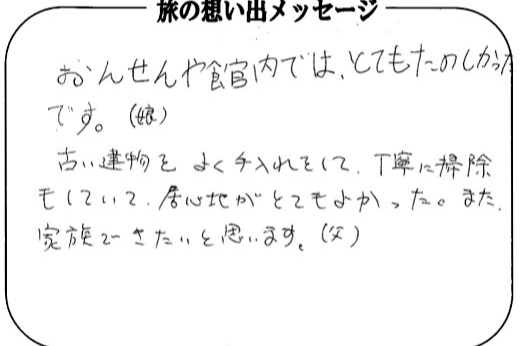 旅の想い出メッセージ
おんせんや館内では、とてもたのしかった
です。(娘)
古い建物を よく手入れをして、丁寧に掃除
もしていて、居心地がとてもよかった。また、
家族できたいと思います。(父)